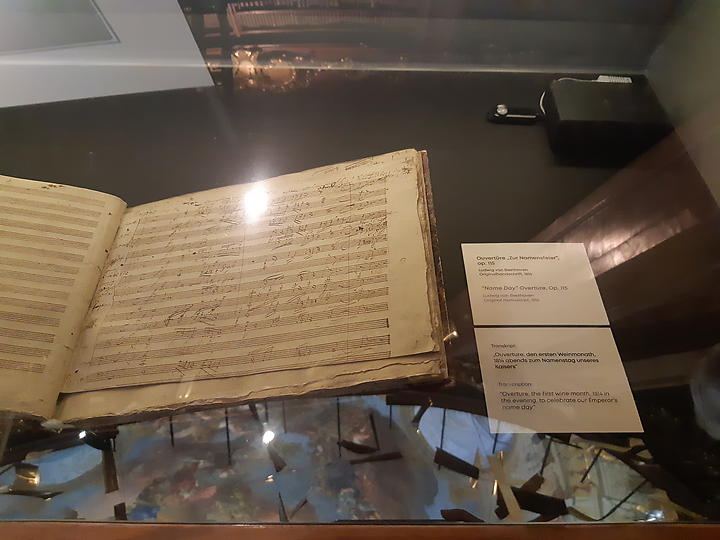 Ouvertüre „Zur Namensfeier",
op. 115
Ludwig van Beethoven
Originalhandschrift, 1814
"Name Day" Overture, Op. 115
Ludwig van Beethoven
Original manuscript, 1814
Transkript:
„Ouverture, den ersten Weinmonath,
1814 abends zum Namenstag unseres
Kaisers"
Transcription:
"Overture, the first wine month, 1814 in
the evening, to celebrate our Emperor's
name day"